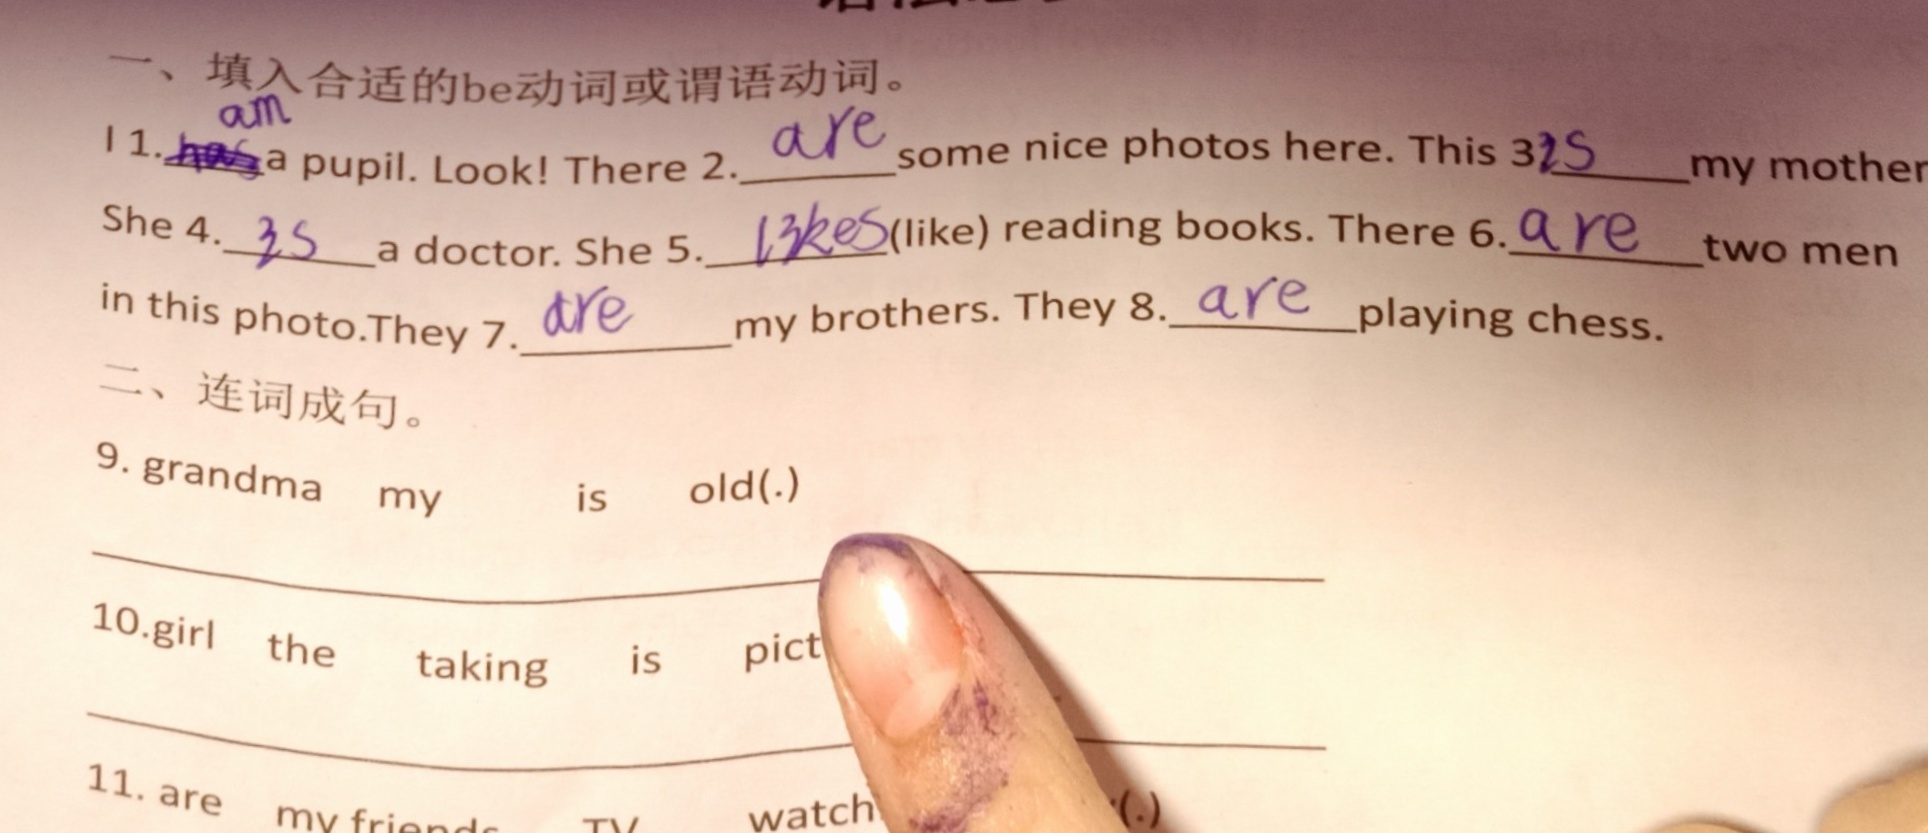 一、填入合适的be动词或谓语动词。
am
I 1. has a pupil. Look! There 2. are some nice photos here. This 3 is my mother
She 4. is a doctor. She 5. likes (like) reading books. There 6. are two men
in this photo.They 7. are my brothers. They 8. are playing chess.
二、连词成句。
9. grandma my is old(.)
10.girl the taking is
11. are my friends TV (.)